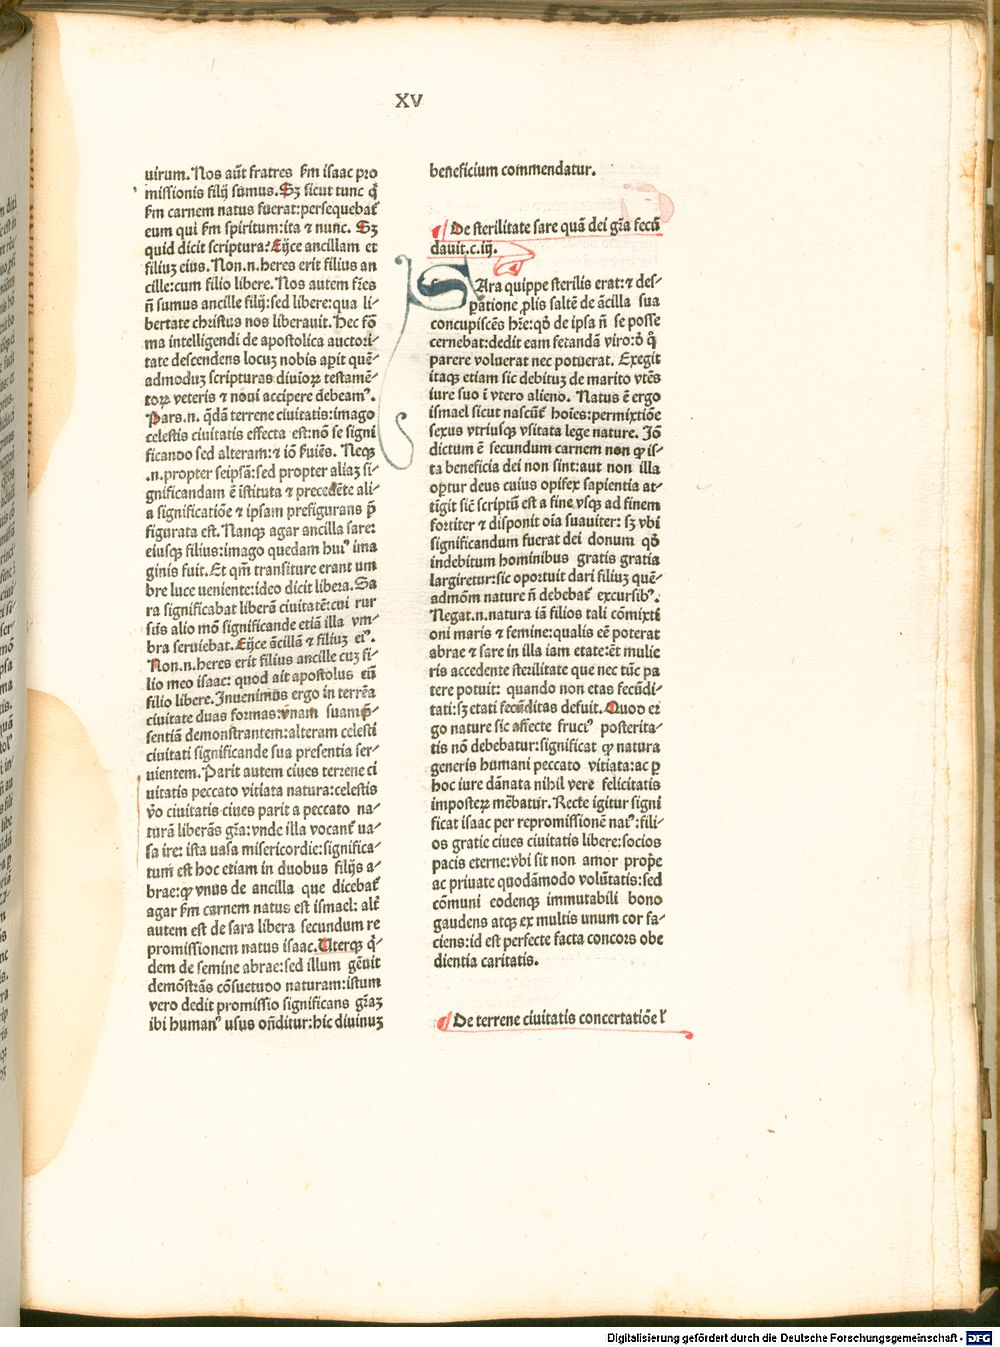 XV
virum. Nos aūt fratres ẜm isaac pro
missionis filij sumus. Sꝫ sicut tunc q̄
ẜm carnem natus fuerat: persequebat᷑
eum qui ẜm spiritum: ita ⁊ nunc. Sꝫ
quid dicit scriptura? Eijce ancillam et
filiuꝫ eius. Non .n. heres erit filius an
cille: cum filio libere. Nos autem fr̄es
n̄ sumus ancille filij: sed libere: qua li-
bertate christus nos liberauit. Hec fō
ma intelligendi de apostolica auctori-
tate descendens locuꝫ nobis aꝑit quē-
admoduꝫ scripturas diuioꝝ testamē-
toꝝ veteris ⁊ noui accipere debeamꝰ.
Pars .n. q̄dā terrene ciuitatis: imago
celestis ciuitatis effecta est: nō se signi
ficando sed alteram: ⁊ iō ẜuiēs. Neqꝫ
.n. propter seipsā: sed propter aliaꝫ si-
gnificandam ē īstituta ⁊ precedēte ali-
a significatiōe ⁊ ipsam prefigurans p̄
figurata est. Nanqꝫ agar ancilla sare:
eiusqꝫ filius: imago quedam huiꝰ ima
ginis fuit. Et qm̄ transiture erant um
bre luce ueniente: ideo dicit libera. Sa
ra significabat liberā ciuitatē: cui rur
sūs alio mō significande etiā illa vm-
bra seruiebat. Eijce ācillā ⁊ filiuꝫ eiꝰ.
Non .n. heres erit filius ancille cuꝫ fi-
lio meo isaac: quod ait apostolus cū
filio libere. Inuenimus ergo in terrēa
ciuitate duas formas: vnam suam p̄-
sentiā demonstrantem: alteram celesti
ciuitati significande sua presentia ser-
uientem. Parit autem ciues terrene ci
uitatis peccato vitiata natura: celestis
v̄o ciuitatis ciues parit a peccato na-
turā liberās gr̄a: vnde illa vocant᷑ ua-
sa ire: ista uasa misericordie: significa-
tum est hoc etiam in duobus filijs a-
brae: ꝙ vnus de ancilla que dicebat᷑
agar ẜm carnem natus est ismael: alt̄
autem est de sara libera secundum re
promissionem natus isaac. Uterqꝫ q̄-
dem de semine abrae: sed illum gēuit
demōstrās cōsuetudo naturam: istum
vero dedit promissio significans gr̄aꝫ
ibi humanꝰ usus ōnditur: hic diuinuꝫ
beneficium commendatur.
De sterilitate sare quā dei gr̄a fecū
dauit. c. iij.
SAra quippe sterilis erat: ⁊ des-
ꝑatione ꝓlis saltē de ācilla sua
concupiscēs hr̄e: qō de ipsa n̄ se posse
cernebat: dedit eam fetandā viro: ō q̊
parere voluerat nec potuerat. Exegit
itaqꝫ etiam sic debituꝫ de marito vtēs
iure suo ī vtero alieno. Natus ē ergo
ismael sicut nascūt᷑ hoīes: permixtiōe
sexus vtriusqꝫ vsitata lege nature. Iō
dictum ē secundum carnem non ꝙ is-
ta beneficia dei non sint: aut non illa
oꝑtur deus cuius opifex sapientia at-
tīgit sic̄ scriptū est a fine vsqꝫ ad finem
fortiter ⁊ disponit oīa suauiter: sꝫ vbi
significandum fuerat dei donum qō
indebitum hominibus gratis gratia
largiretur: sic oportuit dari filiuꝫ quē-
admōm nature n̄ debebat᷑ excursibꝰ.
Negat .n. natura iā filios tali cōmixti
oni maris ⁊ femine: qualis eē poterat
abrae ⁊ sare in illa iam etate: ēt mulie
ris accedente sterilitate que nec tūc pa
tere potuit: quando non etas fecūdi-
tati: sꝫ etati fecūditas defuit. Quod er
go nature sic affecte fructꝰ posterita-
tis nō debebatur: significat ꝙ natura
generis humani peccato vitiata: ac ꝑ
hoc iure dānata nihil vere felicitatis
imposteꝝ mēbatur. Recte igitur signi
ficat isaac per repromissionē natꝰ: fili-
os gratie ciues ciuitatis libere: socios
pacis eterne: vbi sit non amor proꝑe
ac priuate quodāmodo volūtatis: sed
cōmuni eodenqꝫ immutabili bono
gaudens atqꝫ ex multis unum cor fa-
ciens: id est perfecte facta concors obe
dientia caritatis.
De terrene ciuitatis concertatiōe ł
Digitalisierung gefördert durch die Deutsche Forschungsgemeinschaft - DFG